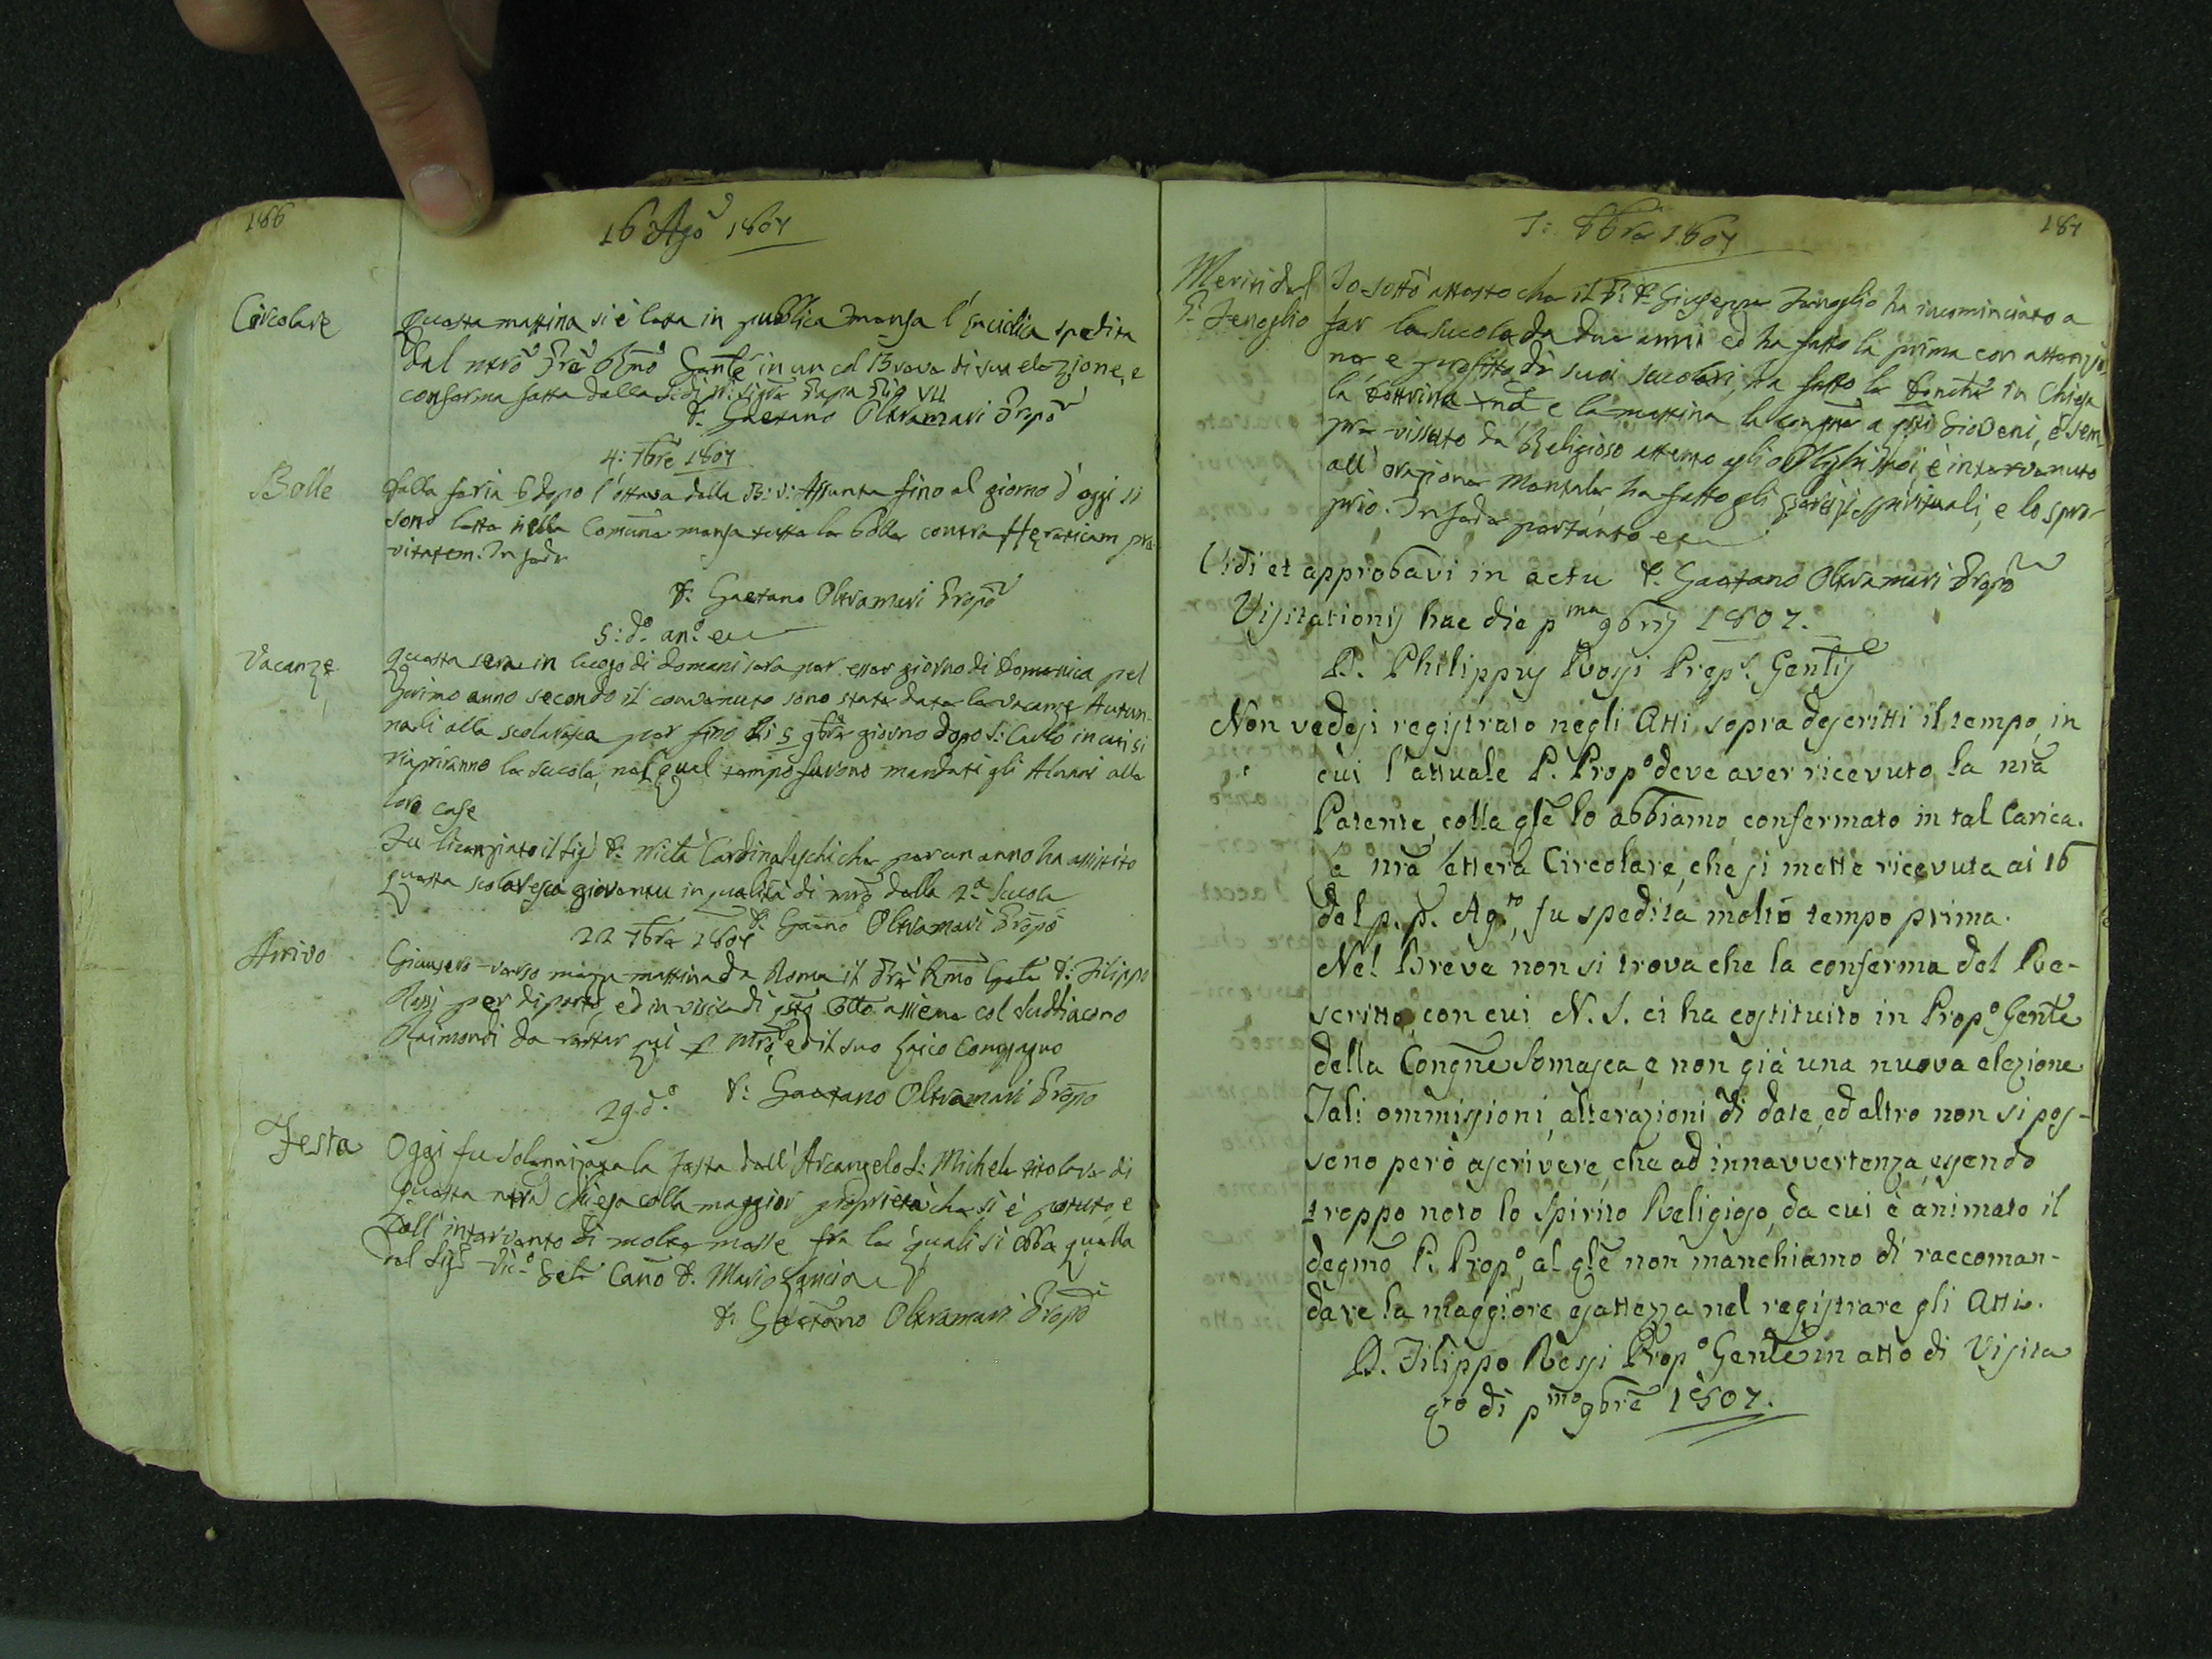 186
16 Ago 1807
Circolare
Questa mattina si è letta in pubblica mensa l'Enciclica spedita
dal nro Pre Rmo Gnle in un col Breve di sua elezione, e
conferma fatta dalla S: di N: Sigre Papa Pio VII
D. Gaetano Oltremari Propo
4: 7bre 1807
Bolle
Dalla feria 6 dopo l'ottava della B: V: Assunta fino al giorno d'oggi si
sono lette nella Comune mensa tutte le bolle contra Hereticam pra-
vitatem. In fede
D. Gaetano Oltremari Propo
5: do ano e
Vacanze
Questa sera in luogo di domani sera per esser giorno di Domenica pel
primo anno secondo il convenuto sono state date le vacanze Autun-
nali alla scolaresca per fino li 5 9bre giorno dopo S: Carlo in cui si
riapriranno le scuole, nel qual tempo furono mandati gli Alunni alle
loro case
Fu licenziato il Sigr D: Cardinaleschi che per un anno ha assistito
questa scolaresca gioventu in qualità di mro della 2a Scuola
D. Gaeno Oltremari Propo
22 7bre 1807
Arrivo
Giunsero verso mezza mattina da Roma il Pre Rmo Gnle D: Filippo
Rossi per diporto, ed in visita di qsto Collo assieme col Suddiacono
Raimondi da restar qui p mro, ed il suo Laico Compagno
D: Gaetano Oltremari Propo
29 do
Festa
Oggi fu solennizzata la festa dell'Arcangelo S: Michele titolare di
questa nra Chiesa colla maggior proprietà che si è potuto, e
coll'intervento di molte messe fra le quali si ebbe quella
del Sigr Vico Gele Cano D. Mario
D: Gaetano Oltremari Propo
187
1: 8bre 1807
Meriti del
P. Fenoglio
Io sotto attesto che il P: D. Giuseppe Fenoglio ha incominciato a
far la scuola da due anni ed ha fatto la prima con attenzio-
ne, e profitto di suoi scolari, ha fatto la Domca in Chiesa
la dottrina xna e la mattina la congne a qsti Gioveni, è sem-
pre vissuto da Religioso attento agli obblighi suoi, è intervenuto
all'orazione mentale ha fatto gli Esercizj spirituali, e lo spro-
prio. In fede pertanto e
D. Gaetano Oltremari Propo
Vidi et approbavi in actu
Visitationis hac die pma 9bris 1807.
D. Philippus Rossi Preps. Gentis
Non vedesi registrato negli Atti sopra descritti il tempo, in
cui l'attuale P. Propo deve aver ricevuto la nra
Patente, colla qle lo abbiamo confermato in tal Carica.
La nra lettera Circolare, che si mette ricevuta ai 16
del p. p. Agto, fu spedita molto tempo prima.
Nel Breve non si trova che la conferma del Re-
scritto, con cui N. S. ci ha costituito in Propo Genle
della Congne Somasca, e non già una nuova elezione
Tali ommissioni, alterazioni di date, ed altro non si pos-
sono però ascrivere, che ad innavvertenza, essendo
troppo noto lo Spirito Religioso, da cui è animato il
degmo P. Propo, al qle non manchiamo di raccoman-
dare la maggiore esattezza nel registrare gli Atti.
D. Filippo Rossi Propo Genle in atto di Visita
qto di pmo 9bre 1807.